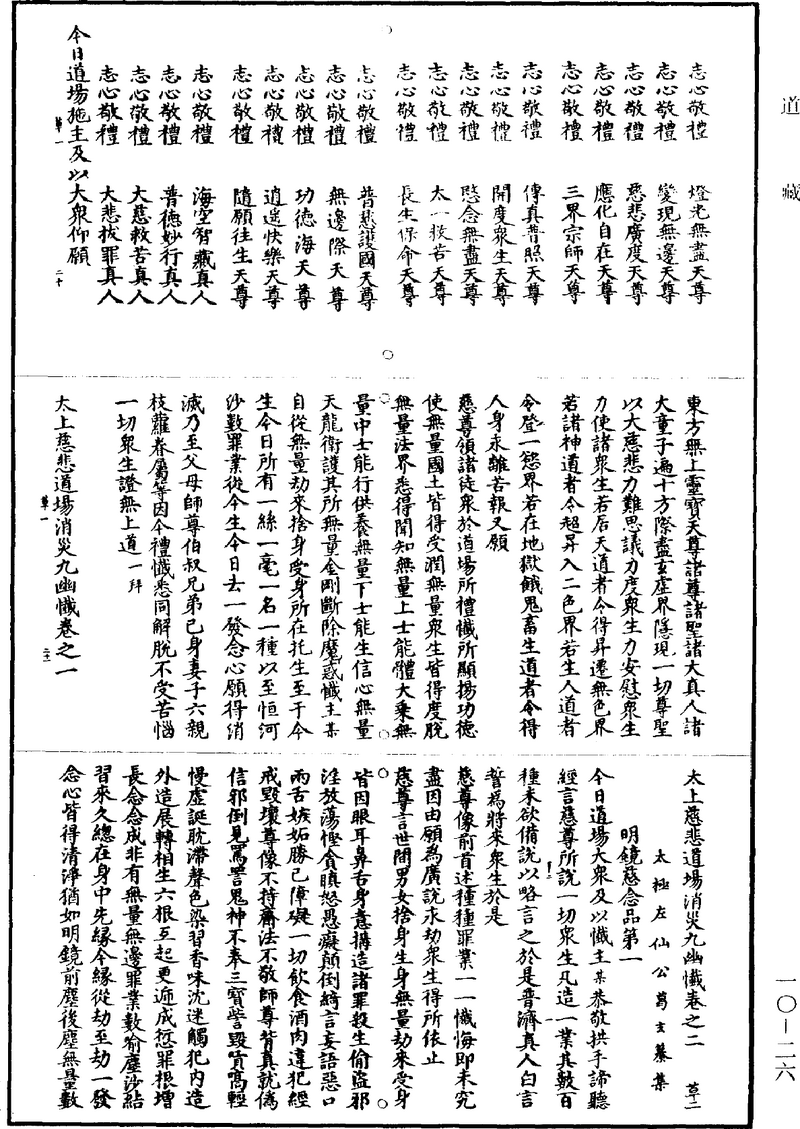 道藏
志心敬禮　燈光無盡天尊
志心敬禮　變現無邊天尊
志心敬禮　慈悲廣度天尊
志心敬禮　應化自在天尊
志心敬禮　三界宗師天尊
志心敬禮　傳真普照天尊
志心敬禮　開度衆生天尊
志心敬禮　愍念無盡天尊
志心敬禮　太一救苦天尊
志心敬禮　長生保命天尊
志心敬禮　普慈護國天尊
志心敬禮　無邊際天尊
志心敬禮　功德海天尊
志心敬禮　逍遥快樂天尊
志心敬禮　隨願往生天尊
志心敬禮　海空智藏真人
志心敬禮　普德妙行真人
志心敬禮　大慈救苦真人
志心敬禮　大悲拔罪真人
草一　二十
今日道場施主及以大衆仰願
東方無上靈寶天尊諸尊諸聖諸大真人諸
大童子遍十方際盡玄虚界隱現一切尊聖
以大慈悲力難思議力度衆生力安慰衆生
力使諸衆生若居天道者令得昇遷無色界
若諸神道者令超昇入二色界若生人道者
令登一慾界若在地獄餓鬼畜生道者令得
人身永離苦報又願
慈尊領諸徒衆於道場所禮懺所顯揚功德
使無量國土皆得受潤無量衆生皆得度脫
無量法界悉得聞知無量上士能體大乘無
量中士能行供養無量下士能生信心無量
天龍衛護其所無量金剛斷除魔惑懺主某
自從無量劫來捨身受身所在托生至于今
生今日所有一絲一毫一名一種以至恒河
沙數罪業從今生今日去一發念心願得消
滅乃至父母師尊伯叔兄弟已身妻子六親
枝蘿眷屬等因今禮懺悉同解脫不受苦惱
一切衆生證無上道一拜
太上慈悲道場消災九幽懺卷之一
草一　二十一
太上慈悲道場消災九幽懺卷之二　草二
太極左仙公葛玄纂集
明鏡慈念品第一
今日道場大衆及以懺主某恭敬拱手諦聽
經言慈尊所說一切衆生凡造一業其數百
種未欲備說以略言之於是普濟真人白言
誓爲將來衆生於是
慈尊像前首述種種罪業一一懺悔即未究
盡因由願爲廣說永劫衆生得所依止
慈尊言世間男女捨身生身無量劫來受身
皆因眼耳鼻舌身意搆造諸罪殺生偷盜邪
淫放蕩慳貪瞋怒愚癡顛倒綺言妄語惡口
兩舌嫉妬勝己障礙一切飲食酒肉違犯經
戒毀壞尊像不持齋法不敬師尊背真就僞
信邪倒見罵詈鬼神不奉三寶訾毀賢高輕
慢虚誕耽滯聲色染習香味沈迷觸犯内造
外造展轉相生六根互起更遞成愆罪根增
長念念成非有無量無邊罪業數喻塵沙結
習來久總在身中先緣今緣從劫至劫一發
念心皆得清淨猶如明鏡前塵後塵無量數
一〇—二六